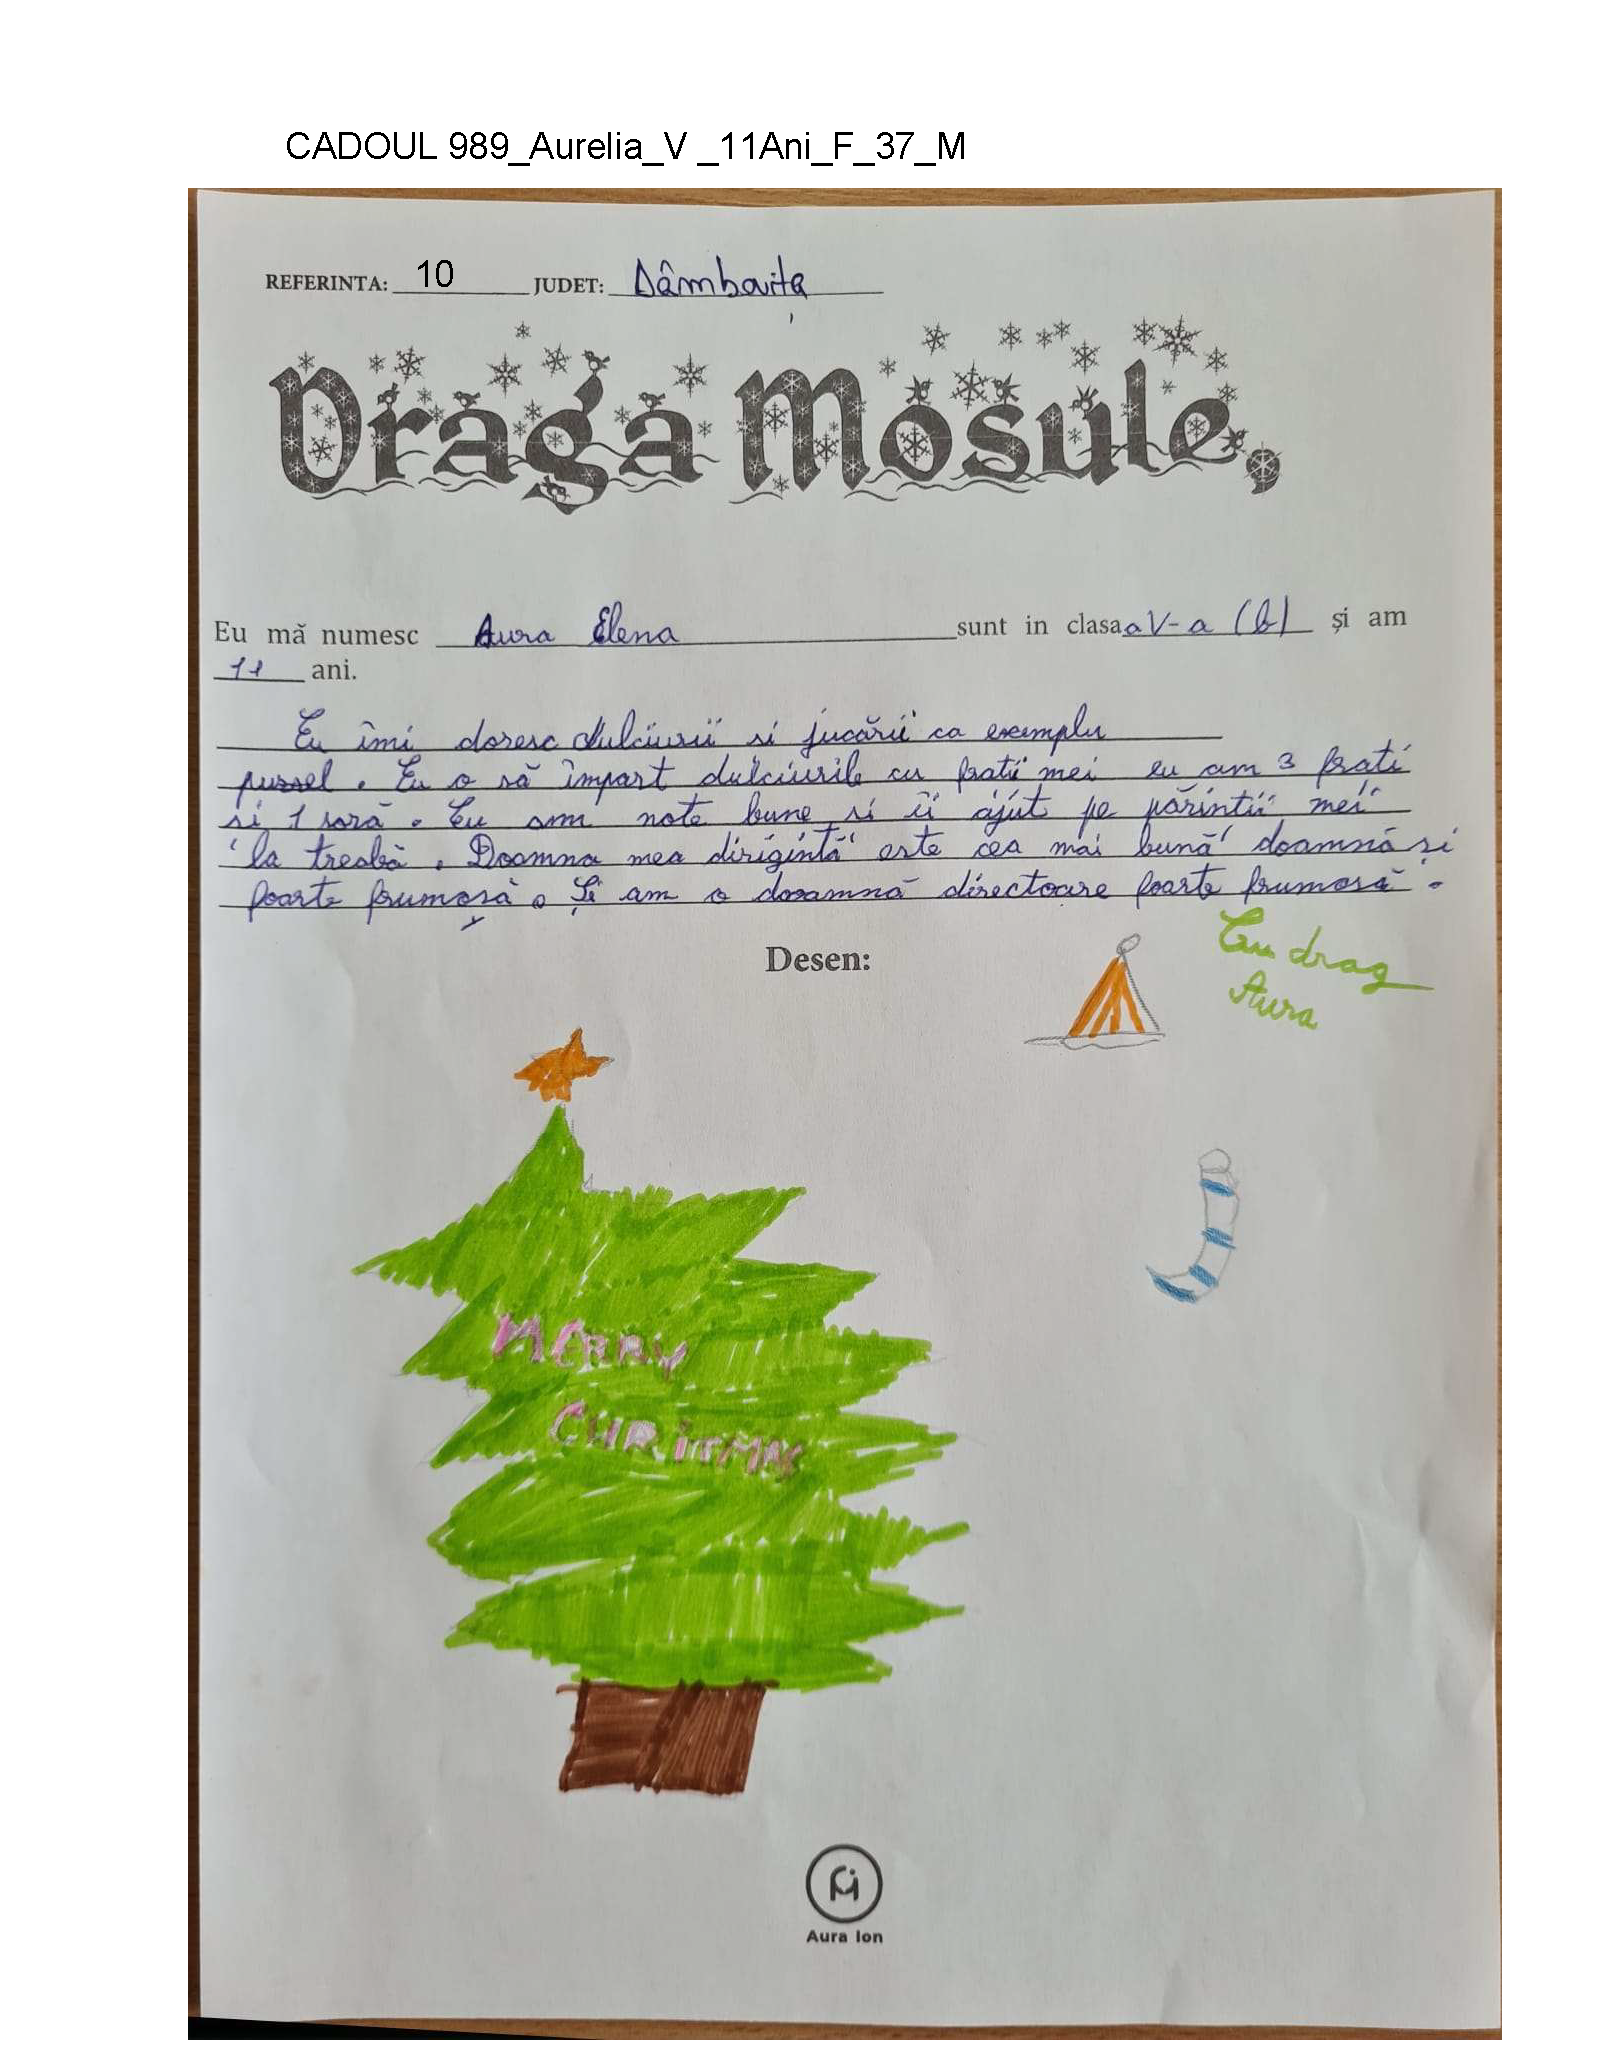 CADOUL 989_Aurelia_V _11Ani_F_37_M
REFERINTA: 10 JUDET: Dâmbovița
Draga Mosule,
Eu mă numesc Aura Elena sunt in clasa a V-a (b) și am
11 ani.
Eu îmi doresc dulciurii si jucării ca exemplu
pussel. Eu o să împart dulciurile cu fratii mei eu am 3 frati
si 1 soră. Eu am note bune si îi ajut pe părintii mei
la treabă. Doamna mea digirintă este cea mai bună doamnă și
foarte frumosă. Și am o dooamnă directoare foarte frumosă.
Desen:
Cu drag
Aura
MERRY
CHRITMAS
Aura Ion